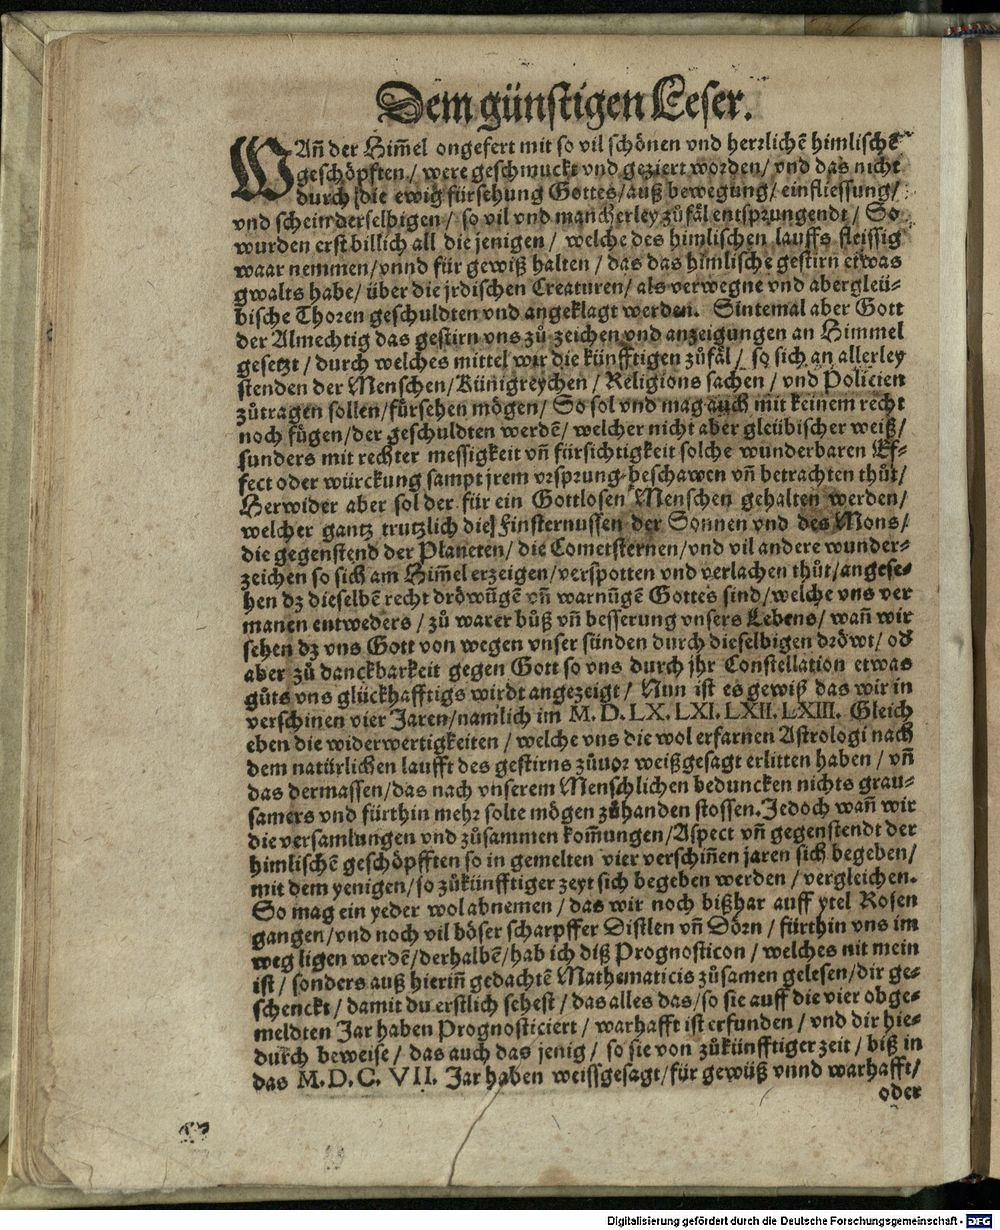 Dem günstigen Leser.
WAñ der Him̃el ongefert mit so vil schönen vnd herꝛlichē himlischē
geschöpfften / were geschmuckt vnd geziert worden / vnd das nicht
durch die ewig fürsehung Gottes / auß bewegung / einfliessung /
vnd schein derselbigen / so vil vnd mancherley zůfäl entsprungendt / So
wurden erst billich all die jenigen / welche des himlischen lauffs fleissig
waar nemmen / vnnd für gewiß halten / das das himlische gestirn etwas
gwalts habe / über die jrdischen Creaturen / als verwegne vnd abergleü-
bische Thoren geschuldten vnd angeklagt werden. Sintemal aber Gott
der Almechtig das gestirn vns zů zeichen vnd anzeigungen an Himmel
gesetzt / durch welches mittel wir die künfftigen zůfäl / so sich an allerley
stenden der Menschen / Künigreychen / Religions sachen / vnd Policien
zůtragen sollen / fürsehen mögen / So sol vnd mag auch mit keinem recht
noch fůgen / der geschuldten werdē / welcher nicht aber gleübischer weiß /
sunders mit rechter messigkeit vñ fürsichtigkeit solche wunderbaren Ef-
fect oder würckung sampt jrem vrsprung beschawen vñ betrachten thůt /
Herwider aber sol der für ein Gottlosen Menschen gehalten werden /
welcher gantz trutzlich die Finsternussen der Sonnen vnd des Mons /
die gegenstend der Planeten / die Cometsternen / vnd vil andere wunder-
zeichen so sich am Him̃el erzeigen / verspotten vnd verlachen thůt / angese-
hen dz dieselbē recht dröwūgē vñ warnūgē Gottes sind / welche vns ver
manen entweders / zů warer bůß vñ besserung vnsers Lebens / wañ wir
sehen dz vns Gott von wegen vnser sünden durch dieselbigen dröwt / od
aber zů danckbarkeit gegen Gott so vns durch jhr Constellation etwas
gůts vns glückhafftigs wirdt angezeigt / Nun ist es gewiß das wir in
verschinen vier Jaren / namlich im M. D. LX. LXI. LXII. LXIII. Gleich
eben die widerwertigkeiten / welche vns die wol erfarnen Astrologi nach
dem natürlichen laufft des gestirns zůuor weißgesagt erlitten haben / vñ
das dermassen / das nach vnserem Menschlichen beduncken nichts grau-
samers vnd fürthin mehr solte mögen zůhanden stossen. Jedoch wañ wir
die versamlungen vnd zůsammen kom̃ungen / Aspect vñ gegenstendt der
himlischē geschöpfften so in gemelten vier verschiñen jaren sich begeben /
mit dem yenigen / so zůkünfftiger zeyt sich begeben werden / vergleichen.
So mag ein yeder wol abnemen / das wir noch bißhar auff ytel Rosen
gangen / vnd noch vil böser scharpffer Distlen vñ Dörn / fürthin vns im
weg ligen werdē / derhalbē / hab ich diß Prognosticon / welches nit mein
ist / sonders auß hieriñ gedachtē Mathematicis zůsamen gelesen / dir ge-
schenckt / damit du erstlich sehest / das alles das / so sie auff die vier obge-
meldten Jar haben Prognosticiert / warhafft ist erfunden / vnd dir hie-
durch beweise / das auch das jenig / so sie von zůkünfftiger zeit / biß in
das M. D. C. VII. Jar haben weissgesagt / für gewüß vnnd warhafft /
oder
Digitalisierung gefördert durch die Deutsche Forschungsgemeinschaft - DFG